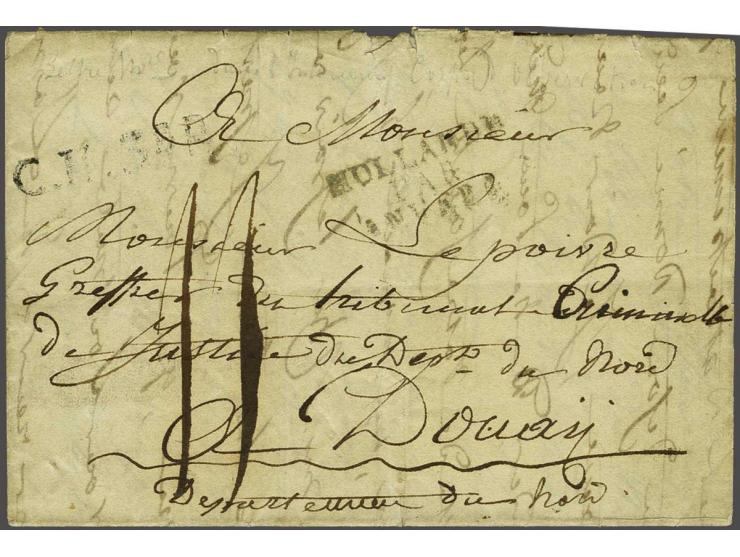 A Monsieur
C.H.3ER
HOLLANDE
PAR
ANVERS
Monsieur Lepoivre
Greffier du tribunal Criminelle
de Justice du Dept. du Nord
A Douaij
Departement du Nord.